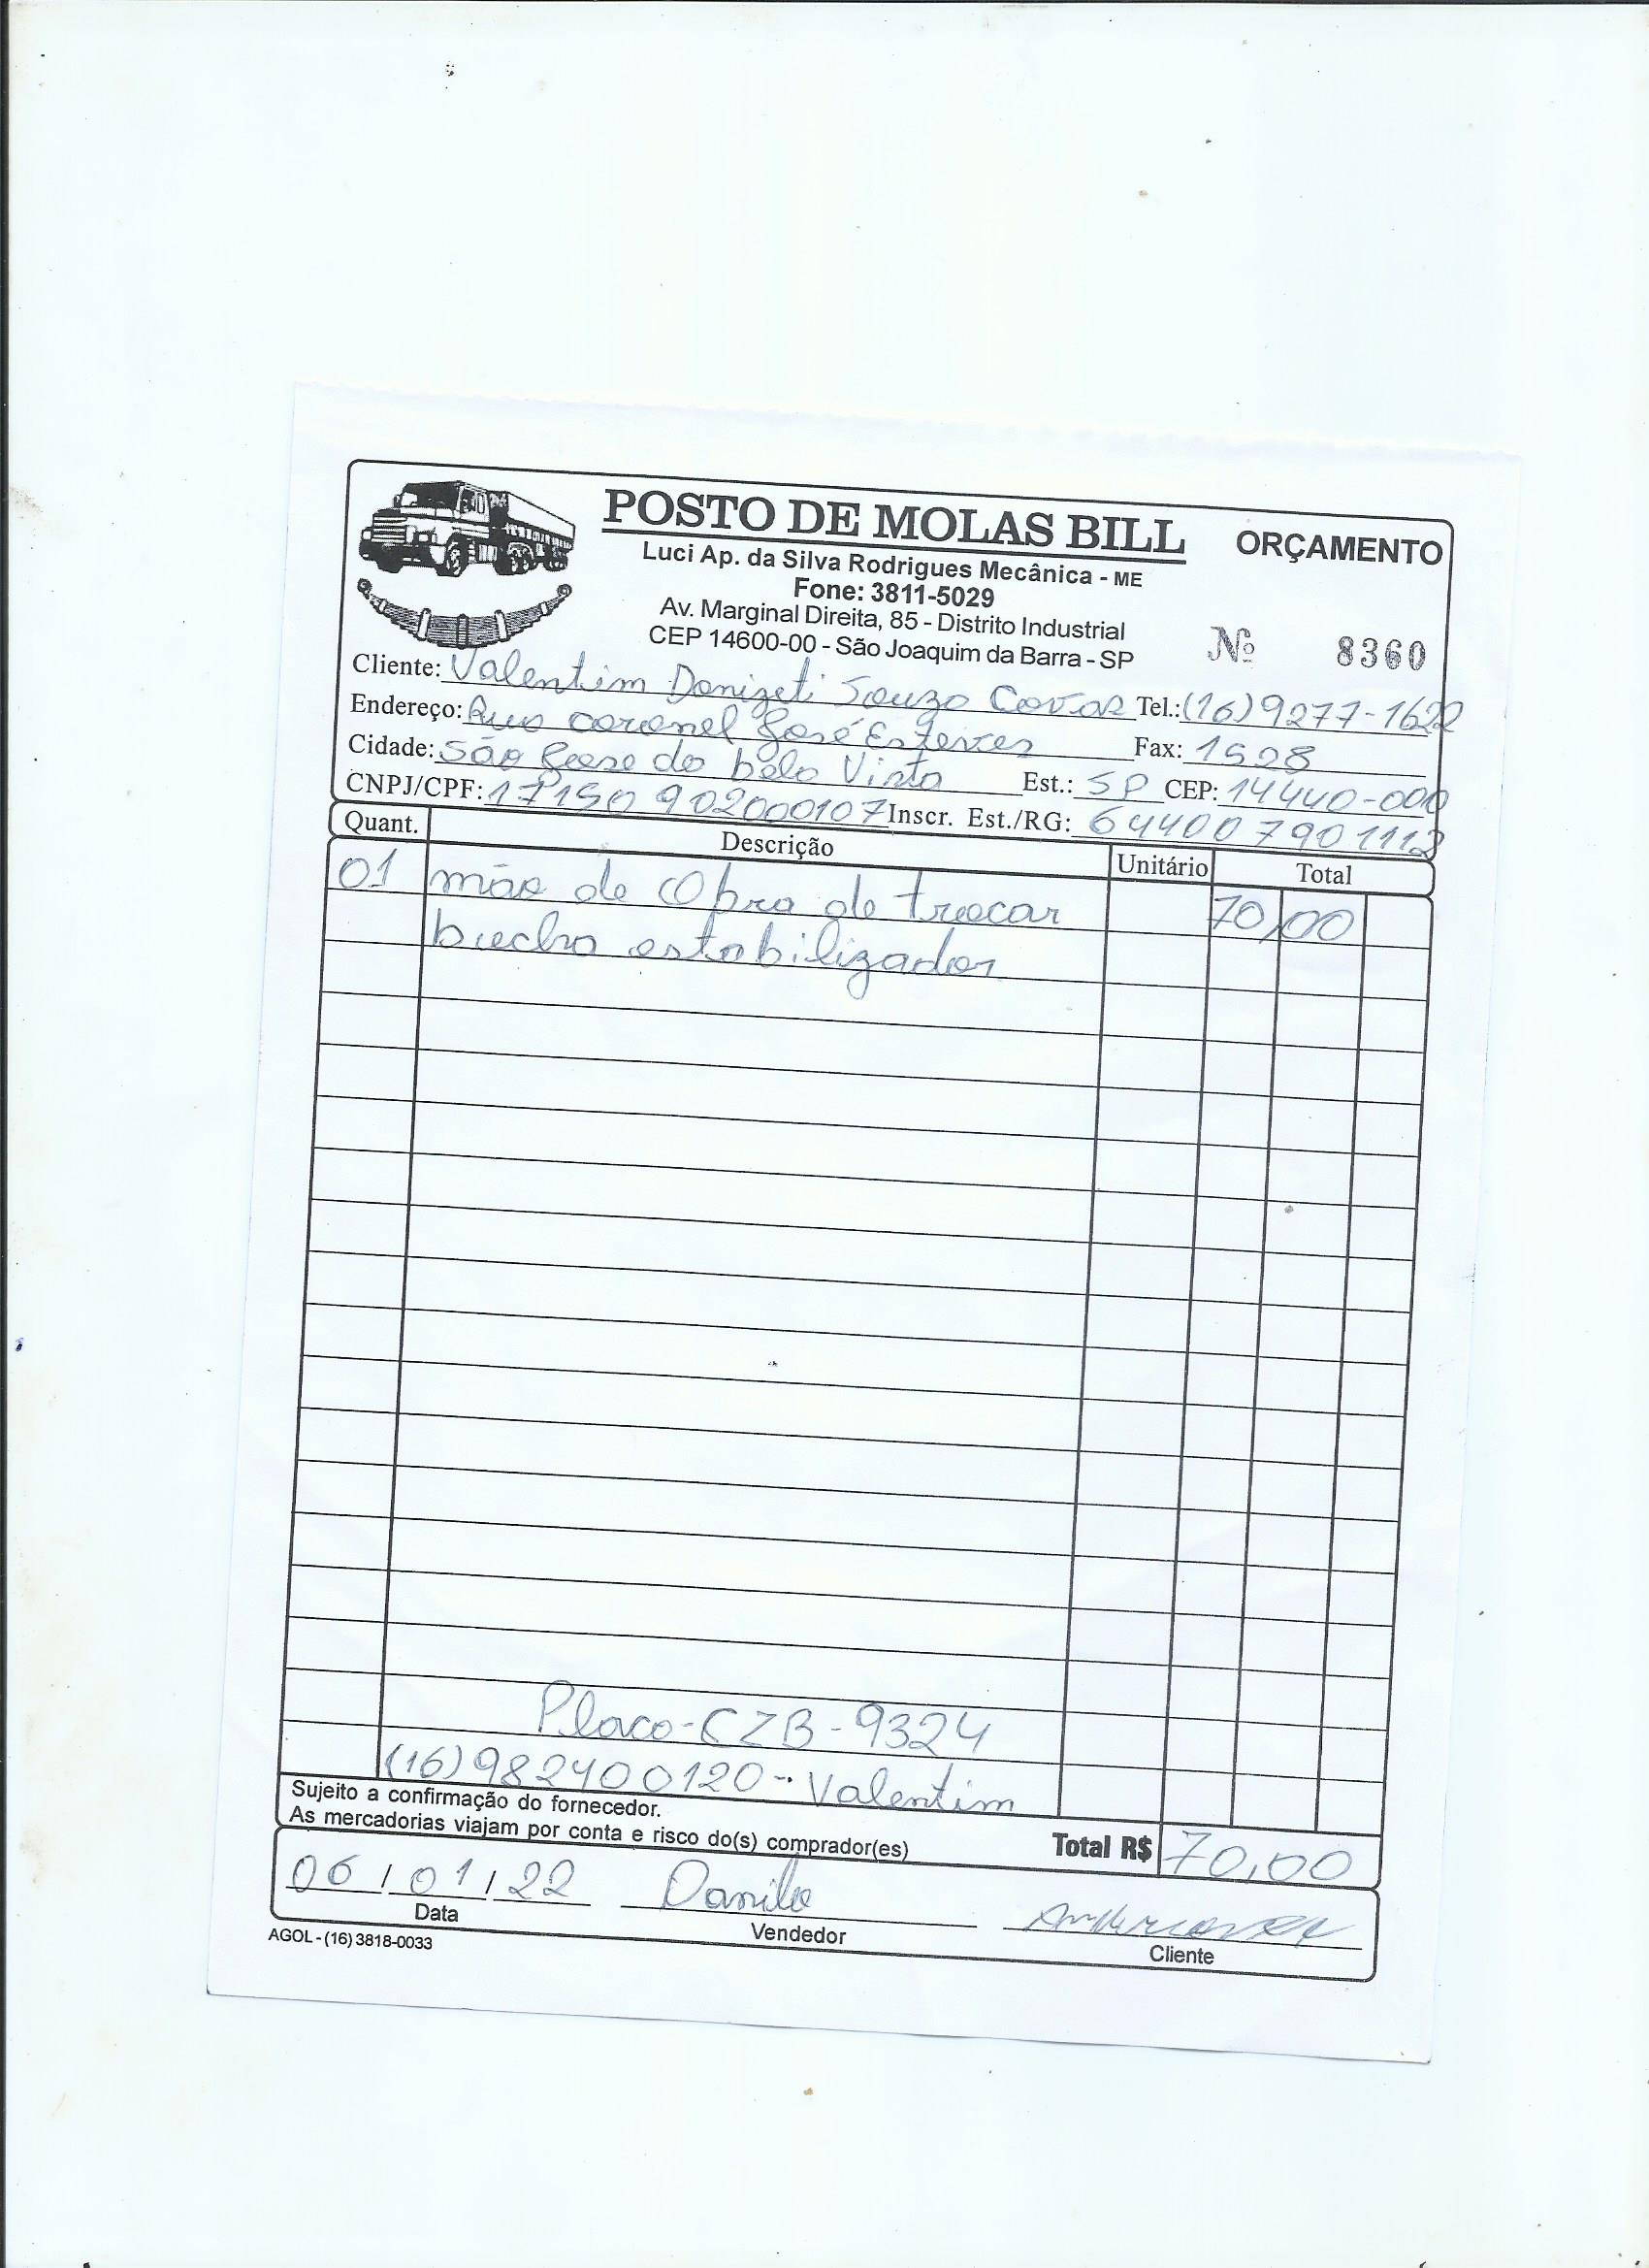 POSTO DE MOLAS BILL ORÇAMENTO
Luci Ap. da Silva Rodrigues Mecânica - ME
Fone: 3811-5029
Av. Marginal Direita, 85 - Distrito Industrial
CEP 14600-00 - São Joaquim da Barra - SP
Nº 8360
Cliente: Valentim Donizeti Souza Tel.: (16) 9277-1622
Endereço: Rua coronel José Esteves Fax: 1528
Cidade: São José da bela Vista Est.: SP CEP: 14440-000
CNPJ/CPF: 17150902000107 Inscr. Est./RG: 644007901112
Quant. Descrição Unitário Total
01 mão de Obra de trocar 70,00
bucha estabilizador
Placa-CZB-9324
(16)982400120-Valentim
Sujeito a confirmação do fornecedor.
As mercadorias viajam por conta e risco do(s) comprador(es) Total R$ 70,00
06/01/22 Danilo
Data Vendedor Cliente
AGOL - (16) 3818-0033